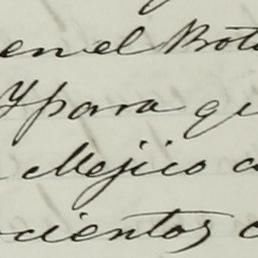 en el Prot
Y para qu
Mejico a
cientos c